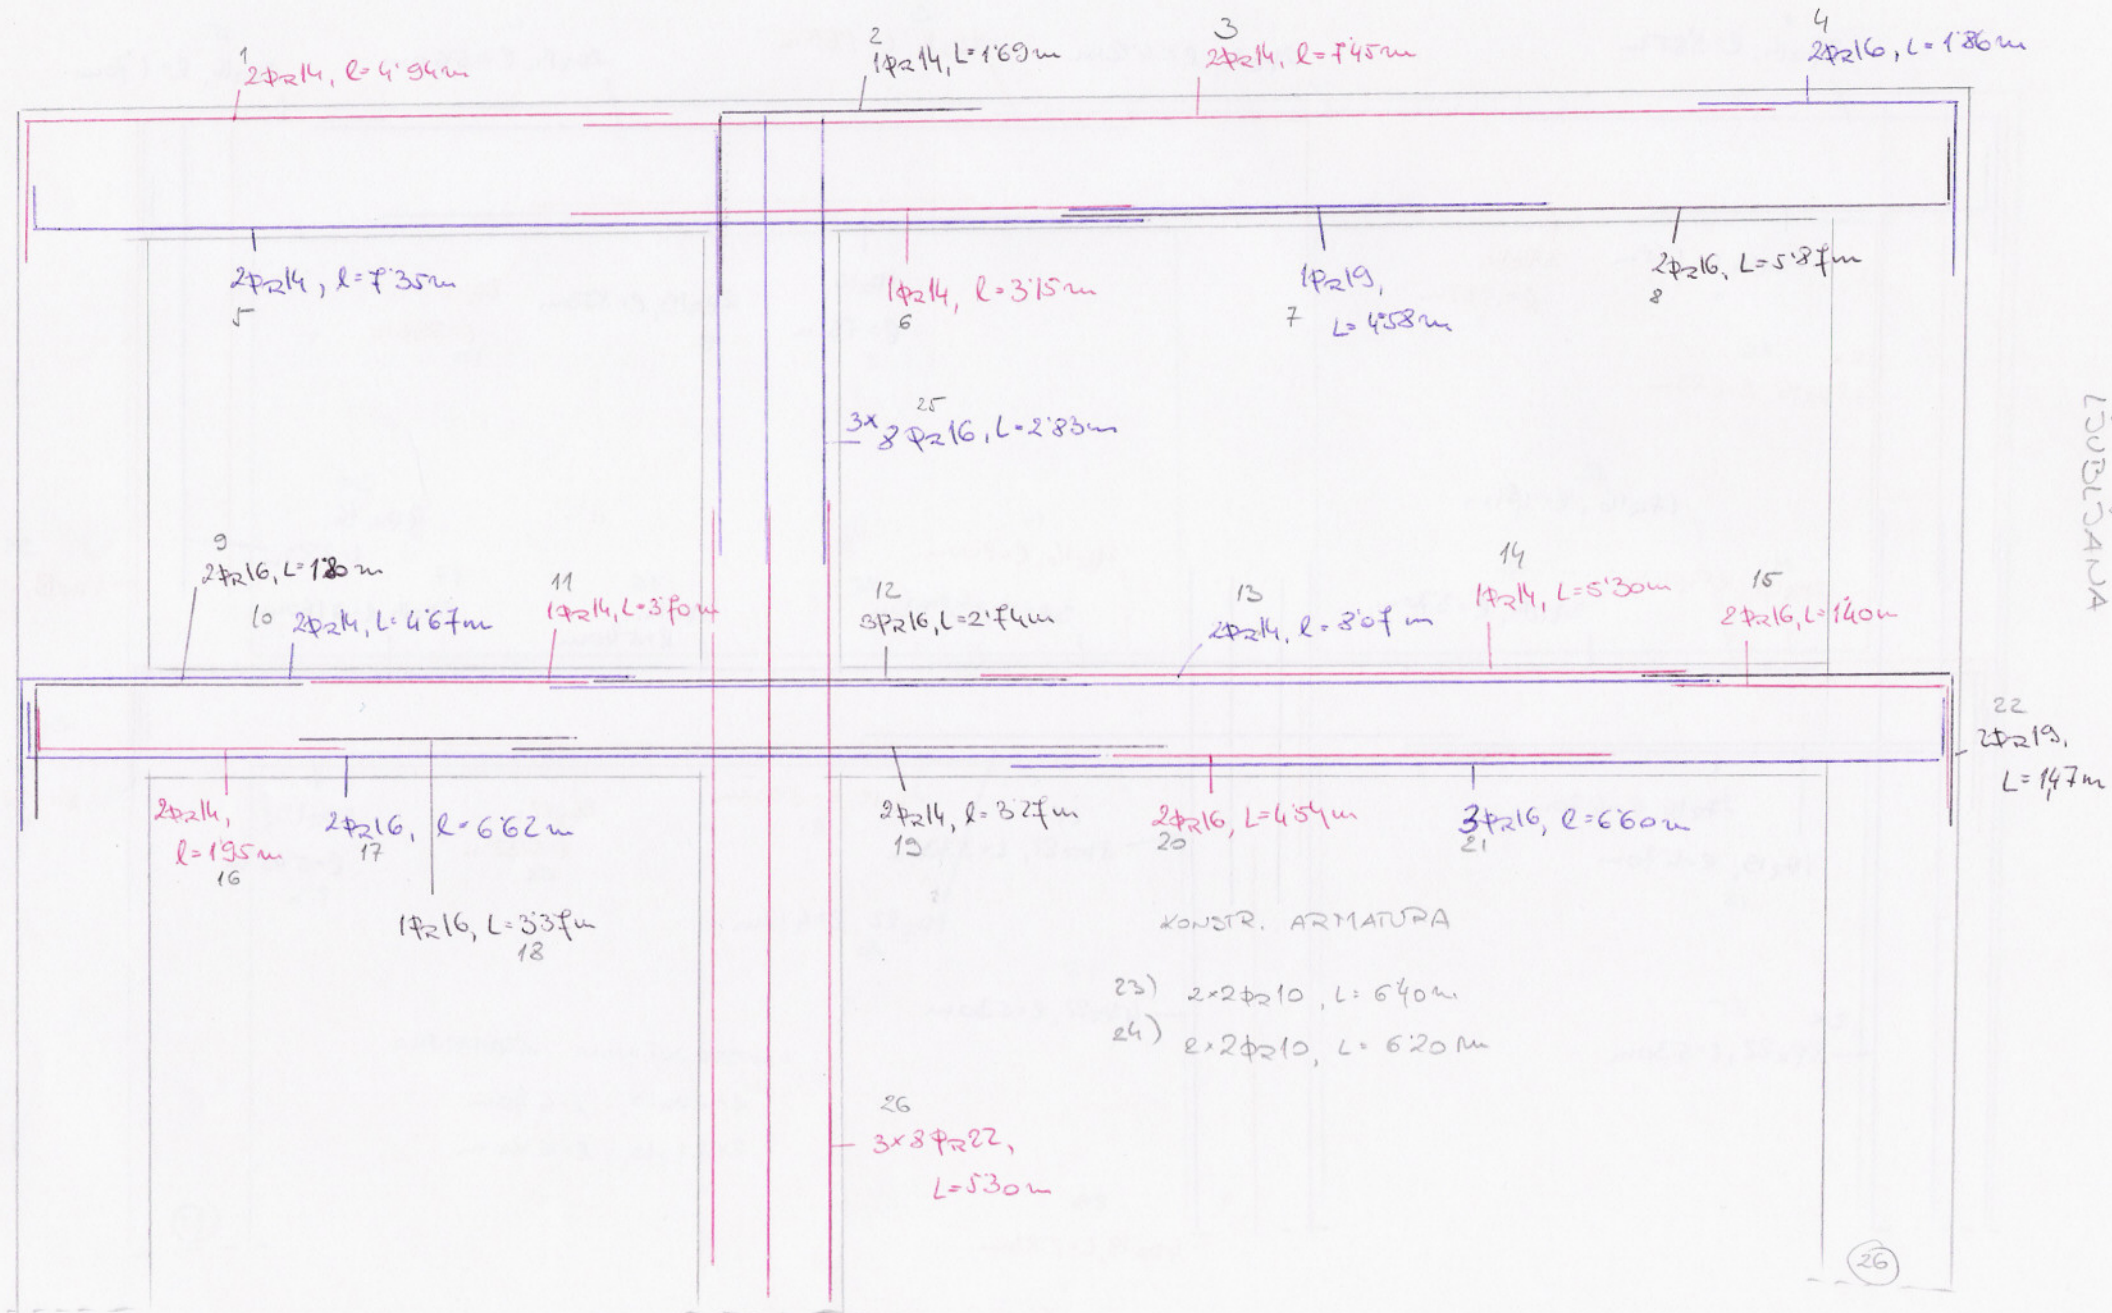 1
2ΦR14, l=4'94m
2
1ΦR14, L=1'69m
3
2ΦR14, l=7'45m
4
2ΦR16, L=1'86m
2ΦR14, l=7'35m
5
1ΦR14, l=3'15m
6
1ΦR19,
7 L=4'58m
2ΦR16, L=5'87m
8
25
3× 8ΦR16, L=2'83m
LJUBLJANA
9
2ΦR16, L=1'80m
10 2ΦR14, L=4'67m
11
1ΦR14, L=3'70m
12
3ΦR16, L=2'74m
13
2ΦR14, l=8'07m
14
1ΦR14, L=5'30m
15
2ΦR16, L=1'40m
22
2ΦR19,
L=1,47m
2ΦR14,
l=1'95m
16
2ΦR16, l=6'62m
17
1ΦR16, L=3'37m
18
2ΦR14, l=3'27m
19
2ΦR16, L=4'54m
20
3ΦR16, l=6'60m
21
KONSTR. ARMATURA
23) 2×2ΦR10, L=6'40m
24) 2×2ΦR10, L=6'20m
26
3×8ΦR22,
L=5'30m
26